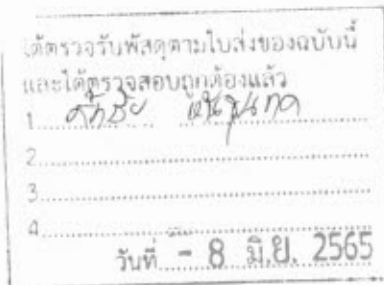 ได้ตรวจรับพัสดุตามใบส่งของฉบับนี้
และได้ตรวจสอบถูกต้องแล้ว
1
2
3
4
วันที่ - 8 มิ.ย. 2565